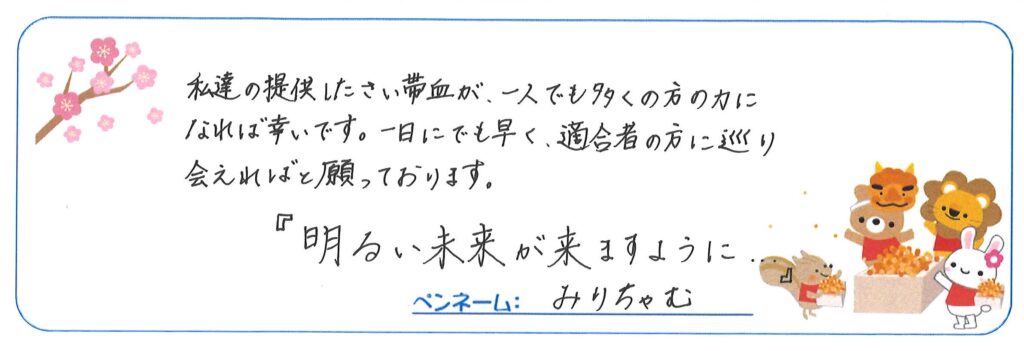 私達の提供したさい帯血が、一人でも多くの方の力に
なれば幸いです。一日にでも早く、適合者の方に巡り
会えればと願っております。
『明るい未来が来ますように…』
ペンネーム: みりちゃむ